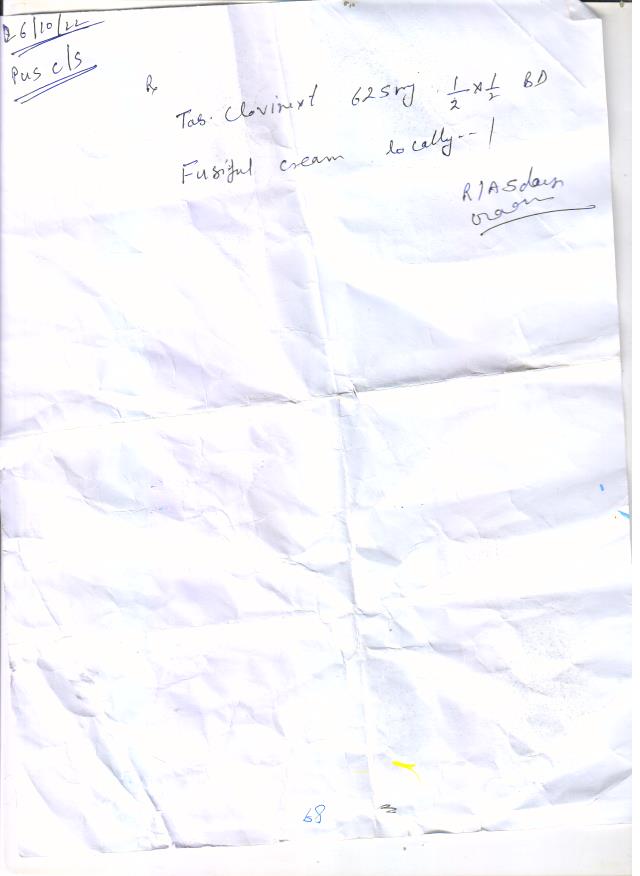 26/10/22
Pus c/s
Rx
Tab. Clovinext 625mg 1/2 x 1/2 BD
Fusiful cream locally -- 1
R/A 5 days
68